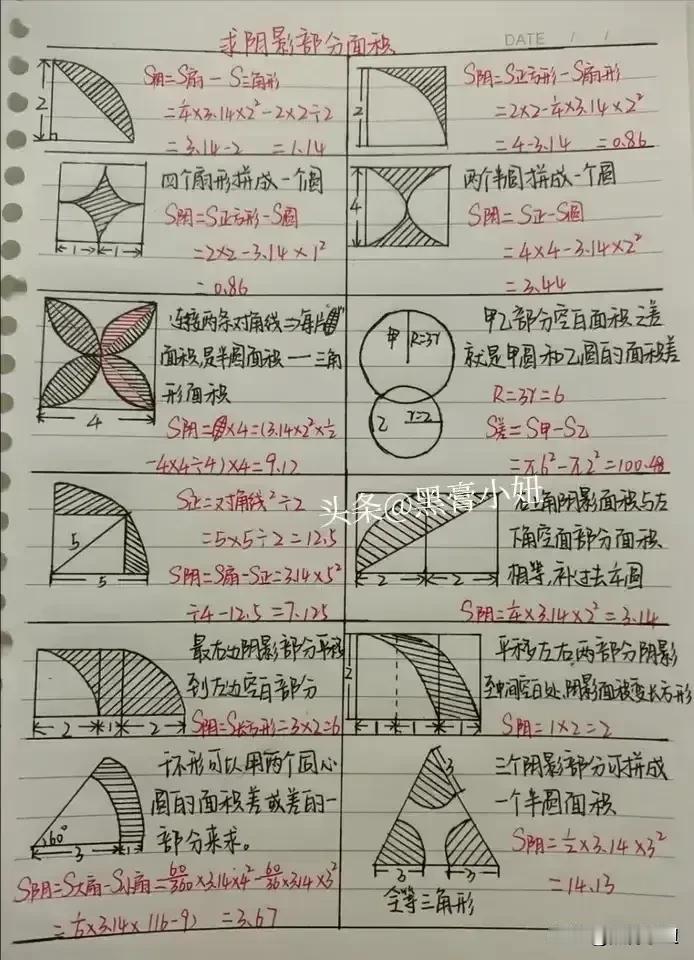 求阴影部分面积
DATE / /
2
S阴=S扇-S三角形
=¼×3.14×2²-2×2÷2
=3.14-2 =1.14
2
S阴=S正方形-S扇形
=2×2-¼×3.14×2²
=4-3.14 =0.86
1 1
四个扇形拼成一个圆
S阴=S正方形-S圆
=2×2-3.14×1²
=0.86
4
两个半圆拼成一个圆
S阴=S正-S圆
=4×4-3.14×2²
=3.44
4
连接两条对角线⇒每片
面积是半圆面积一三角
形面积
S阴=×4=(3.14×2²×½
-4×4÷4)×4=9.12
甲 R=3r
乙 r=2
甲乙部分空白面积之差
就是甲圆和乙圆的面积差
R=3r=6
S差=S甲-S乙
=π.6²-π.2²=100.48
5
5
S正=对角线²÷2
=5×5÷2=12.5
S阴=S扇-S正=3.14×5²
÷4-12.5=7.125
2 2
右上角阴影面积与左
下角空面部分面积
相等,补过去车圆
S阴=¼×3.14×2²=3.14
头条@黑膏小妞
2 1 2
最右边阴影部分平移
到左边空白部分
S阴=S长方形=3×2=6
2
1 1 1
平移左右两部分阴影
至中间空白处,阴影面积变长方形
S阴=1×2=2
60°
3 1
干环形可以用两个同心
圆的面积差或差的一
部分来求。
S阴=S大扇-S小扇=60/360×3.14×4²-60/36×3.14×3²
=⅙×3.14×(16-9) =3.67
3
3 3
全等三角形
三个阴影部分可拼成
一个半圆面积
S阴=½×3.14×3²
=14.13